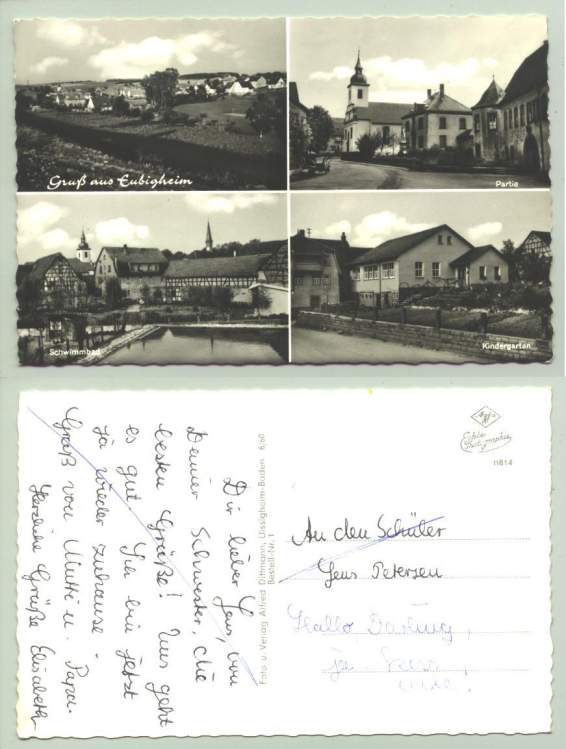 Gruß aus Eubigheim
Partie
Schwimmbad
Kindergarten
Dir lieber Jens, von
Deiner Schwester, die
besten Grüße! Uns geht
es gut. Ich bin jetzt
ja wieder zuhause.
Gruß von Mutti u. Papa.
Herzliche Grüße Elisabeth
Foto u. Verlag Alfred Dittmann, Uissigheim-Baden 6.60
Bestell-Nr. 1
Echte
Photographie
n814
An den Schüler
Jens Petersen
Hallo, Darling,